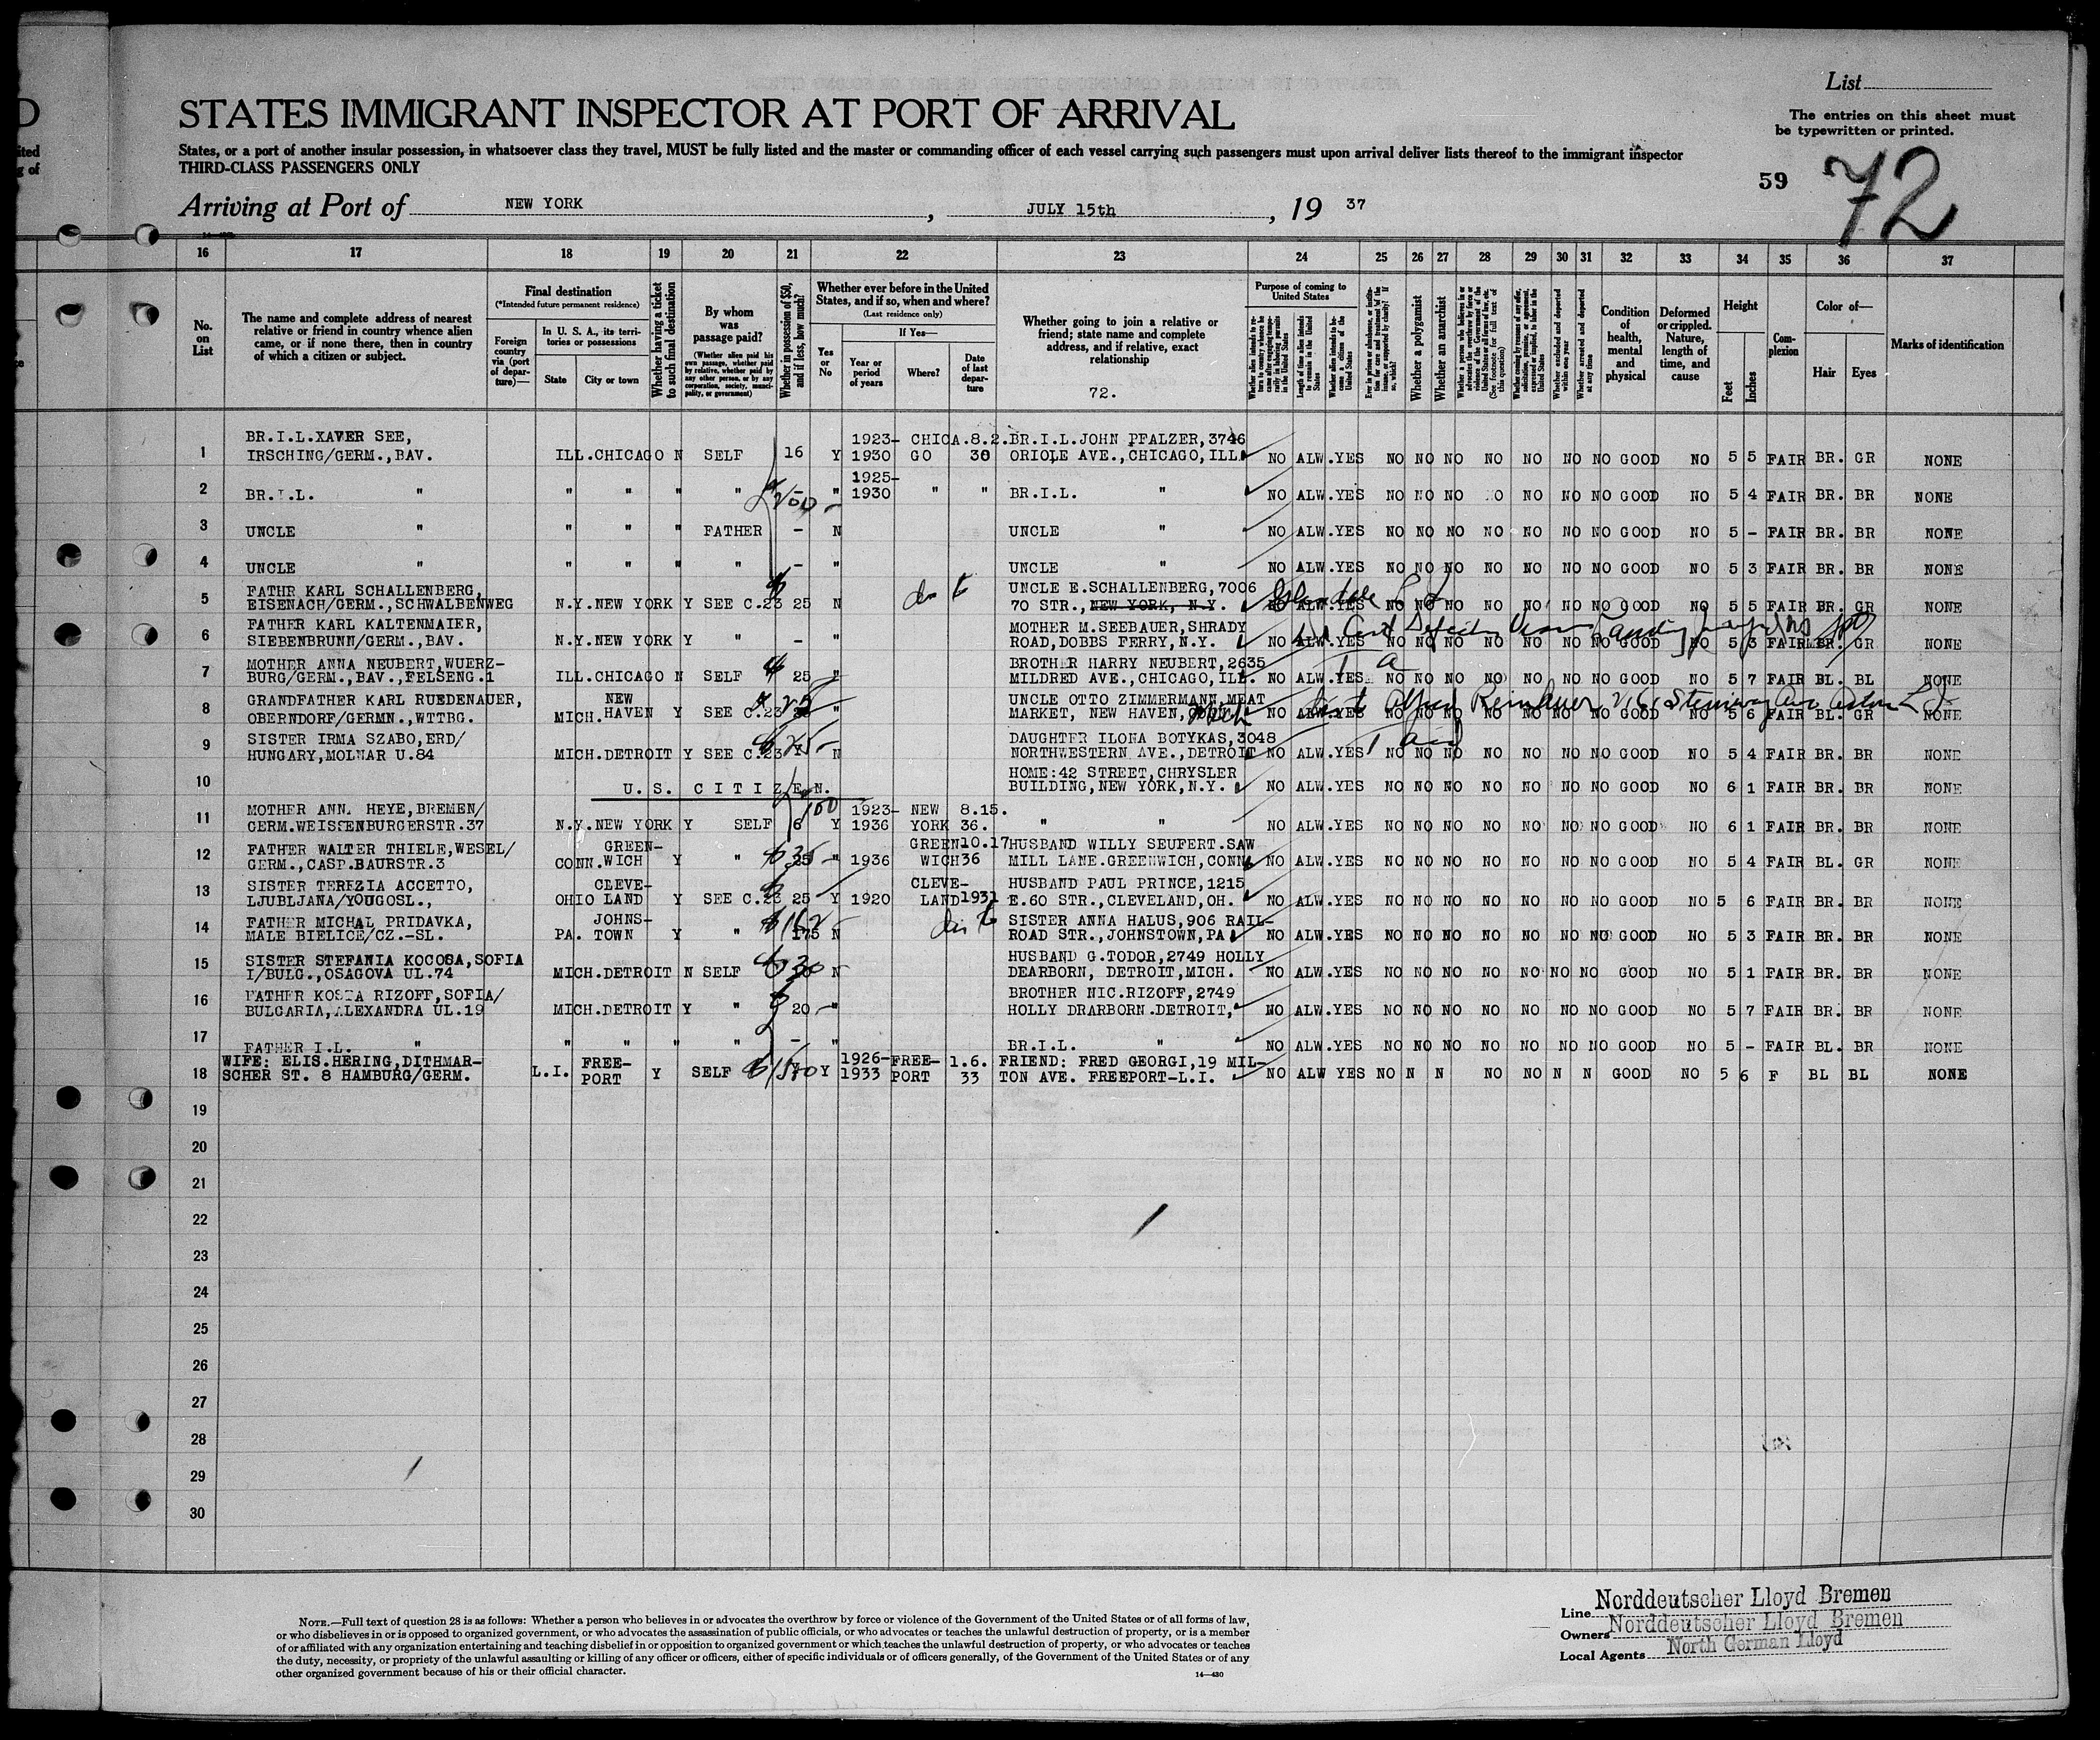 List
STATES IMMIGRANT INSPECTOR AT PORT OF ARRIVAL
The entries on this sheet must
be typewritten or printed.
States, or a port of another insular possession, in whatsoever class they travel, MUST be fully listed and the master or commanding officer of each vessel carrying such passengers must upon arrival deliver lists thereof to the immigrant inspector
THIRD-CLASS PASSENGERS ONLY
59 72
Arriving at Port of NEW YORK, JULY 15th, 19 37
16 17 18 19 20 21 22 23 24 25 26 27 28 29 30 31 32 33 34 35 36 37
No.
on
List
The name and complete address of nearest
relative or friend in country whence alien
came, or if none there, then in country
of which a citizen or subject.
Final destination
(*Intended future permanent residence)
Foreign
country
via (port
of depar-
ture)—
In U. S. A., its terri-
tories or possessions
State City or town
Whether having a ticket
to such final destination
By whom
was
passage paid?
(Whether alien paid his
own passage, whether paid
by relative, whether paid by
any other person, or by any
corporation, society, munici-
pality, or government)
Whether in possession of $50,
and if less, how much?
Whether ever before in the United
States, and if so, when and where?
(Last residence only)
Yes
or
No
If Yes—
Year or
period
of years
Where?
Date
of last
depar-
ture
Whether going to join a relative or
friend; state name and complete
address, and if relative, exact
relationship
72.
Purpose of coming to
United States
Whether a polygamist
Whether an anarchist
Condition
of
health,
mental
and
physical
Deformed
or crippled.
Nature,
length of
time, and
cause
Height
Feet Inches
Com-
plexion
Color of—
Hair Eyes
Marks of identification
BR.I.L.XAVER SEE, 1923- CHICA.8.2. BR.I.L.JOHN PFALZER,3746
1 IRSCHING/GERM.,BAV. ILL.CHICAGO N SELF 16 Y 1930 GO 30 ORIOLE AVE.,CHICAGO,ILL. NO ALW.YES NO NO NO NO NO NO NO GOOD NO 5 5 FAIR BR. GR NONE
1925-
2 BR.I.L. " " " " " - " 1930 " " BR.I.L. " NO ALW.YES NO NO NO NO NO NO NO GOOD NO 5 4 FAIR BR. BR NONE
3 UNCLE " " " " FATHER - N UNCLE " NO ALW.YES NO NO NO NO NO NO NO GOOD NO 5 - FAIR BR. BR NONE
4 UNCLE " " " " " - " UNCLE " NO ALW.YES NO NO NO NO NO NO NO GOOD NO 5 3 FAIR BR. BR NONE
FATHR KARL SCHALLENBERG, UNCLE E.SCHALLENBERG,7006
5 EISENACH/GERM.,SCHWALBENWEG N.Y.NEW YORK Y SEE C.23 25 N 70 STR.,NEW YORK, N.Y. NO ALW.YES NO NO NO NO NO NO NO GOOD NO 5 5 FAIR BR. GR NONE
FATHER KARL KALTENMAIER, MOTHER M.SEEBAUER,SHRADY
6 SIEBENBRUNN/GERM.,BAV. N.Y.NEW YORK Y " - " ROAD,DOBBS FERRY,N.Y. NO ALW.YES NO NO NO NO NO NO NO GOOD NO 5 3 FAIR BR. GR NONE
MOTHER ANNA NEUBERT,WUERZ- BROTHER HARRY NEUBERT,2635
7 BURG/GERM.,BAV.,FELSENG.1 ILL.CHICAGO N SELF 25 " MILDRED AVE.,CHICAGO,ILL. NO ALW.YES NO NO NO NO NO NO NO GOOD NO 5 7 FAIR BL. BL NONE
GRANDFATHER KARL RUEDENAUER, NEW UNCLE OTTO ZIMMERMANN,MEAT
8 OBERNDORF/GERMN.,WTTBG. MICH.HAVEN Y SEE C.23 25 " MARKET, NEW HAVEN, Mich NO ALW.YES NO NO NO NO NO NO NO GOOD NO 5 6 FAIR BL. GR NONE
SISTER IRMA SZABO,ERD/ DAUGHTER ILONA BOTYKAS,3048
9 HUNGARY,MOLNAR U.84 MICH.DETROIT Y SEE C.23 25 N NORTHWESTERN AVE.,DETROIT NO ALW.YES NO NO NO NO NO NO NO GOOD NO 5 4 FAIR BR. BR NONE
HOME:42 STREET,CHRYSLER
10 U.S. CITIZEN. BUILDING,NEW YORK,N.Y. NO ALW.YES NO NO NO NO NO NO NO GOOD NO 6 1 FAIR BR. BR NONE
MOTHER ANN. HEYE,BREMEN/ 100 1923- NEW 8.15.
11 GERM.WEISSENBURGERSTR.37 N.Y.NEW YORK Y SELF 6 Y 1936 YORK 36. " " NO ALW.YES NO NO NO NO NO NO NO GOOD NO 6 1 FAIR BR. BR NONE
FATHER WALTER THIELE,WESEL/ GREEN- GREEN10.17 HUSBAND WILLY SEUFERT.SAW
12 GERM.,CASP.BAURSTR.3 CONN.WICH Y " $35 " 1936 WICH36 MILL LANE.GREENWICH,CONN. NO ALW.YES NO NO NO NO NO NO NO GOOD NO 5 4 FAIR BL. GR NONE
SISTER TEREZIA ACCETTO, CLEVE- CLEVE- HUSBAND PAUL PRINCE,1215
13 LJUBLJANA/YOUGOSL., OHIO LAND Y SEE C.23 25 Y 1920 LAND1931 E.60 STR.,CLEVELAND,OH. NO ALW.YES NO NO NO NO NO NO NO GOOD NO 5 6 FAIR BR. BR NONE
FATHER MICHAL PRIDAVKA, JOHNS- SISTER ANNA HALUS,906 RAIL-
14 MALE BIELICE/CZ.-SL. PA. TOWN Y " 175 N ROAD STR.,JOHNSTOWN,PA. NO ALW.YES NO NO NO NO NO NO NO GOOD NO 5 3 FAIR BR. BR NONE
SISTER STEFANIA KOCOSA,SOFIA HUSBAND G.TODOR,2749 HOLLY
15 I/BULG.,OSAGOVA UL.74 MICH.DETROIT N SELF 30 N DEARBORN, DETROIT,MICH. NO ALW.YES NO NO NO NO NO NO NO GOOD NO 5 1 FAIR BR. BR NONE
FATHER KOSTA RIZOFF,SOFIA/ BROTHER NIC.RIZOFF,2749
16 BULGARIA,ALEXANDRA UL.19 MICH.DETROIT Y " 20 " HOLLY DRARBORN.DETROIT, NO ALW.YES NO NO NO NO NO NO NO GOOD NO 5 7 FAIR BR. BR NONE
17 FATHER I.L. " " " " " - " BR.I.L. " NO ALW.YES NO NO NO NO NO NO NO GOOD NO 5 - FAIR BL. BR NONE
WIFE: ELIS.HERING,DITHMAR- FREE- 1926- FREE- 1.6. FRIEND: FRED GEORGI,19 MIL-
18 SCHER ST. 8 HAMBURG/GERM. L.I. PORT Y SELF Y 1933 PORT 33 TON AVE. FREEPORT-L.I. NO ALW YES NO N N NO NO N N GOOD NO 5 6 F BL BL NONE
19
20
21
22
23
24
25
26
27
28
29
30
NOTE.—Full text of question 28 is as follows: Whether a person who believes in or advocates the overthrow by force or violence of the Government of the United States or of all forms of law,
or who disbelieves in or is opposed to organized government, or who advocates the assassination of public officials, or who advocates or teaches the unlawful destruction of property, or is a member
of or affiliated with any organization entertaining and teaching disbelief in or opposition to organized government or which teaches the unlawful destruction of property, or who advocates or teaches
the duty, necessity, or propriety of the unlawful assaulting or killing of any officer or officers, either of specific individuals or of officers generally, of the Government of the United States or of any
other organized government because of his or their official character.
14—430
Line Norddeutscher Lloyd Bremen
Owners Norddeutscher Lloyd Bremen
Local Agents North German Lloyd